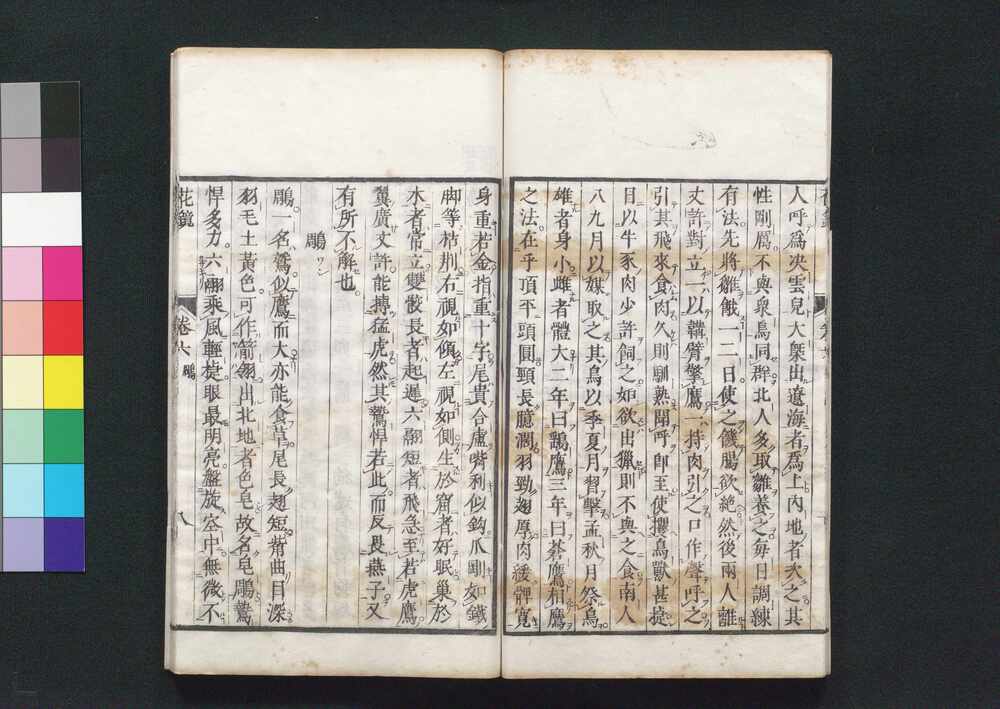 人呼爲決雲兒大槩出遼海者爲上內地者次之其
性剛厲不與衆鳥同群北人多取雛養之毎日調練
有法先將雛餓一二日使之饑腸欲絶然後兩人離
丈許對立一以鞲臂擎鷹一持肉引之口作聲呼之
引其飛來食肉久則馴熟隔呼卽至使攫鳥獸甚捷
目以牛豕肉少許飼之如欲出獵則不與之食南人
八九月以媒取之其鳥以季夏月習擊孟秋月祭鳥
雄者身小雌者體大二年曰鷂鷹三年曰蒼鷹相鷹
之法在乎頂平頭圓頸長臆濶羽勁翅厚肉緩髀寬
身重若金指重十字尾貴合盧嘴利似鈎爪剛如鐵
脚等枯荆右視如傾左視如側生於窟者好眠巢於
木者常立雙骹長者起遲六翮短者飛急至若虎鷹
翼廣丈許能搏猛虎然其鷙悍若此而反畏燕子又
有所不解也
鵰ワシ
鵰一名鷲似鷹而大亦能食草尾長翅短觜曲目深
羽毛土黃色可作箭翎出北地者色皂故名皂鵰鷙
悍多力六翮乘風輕捷眼最明亮盤旋空中無微不
花鏡
卷六
鵰
八